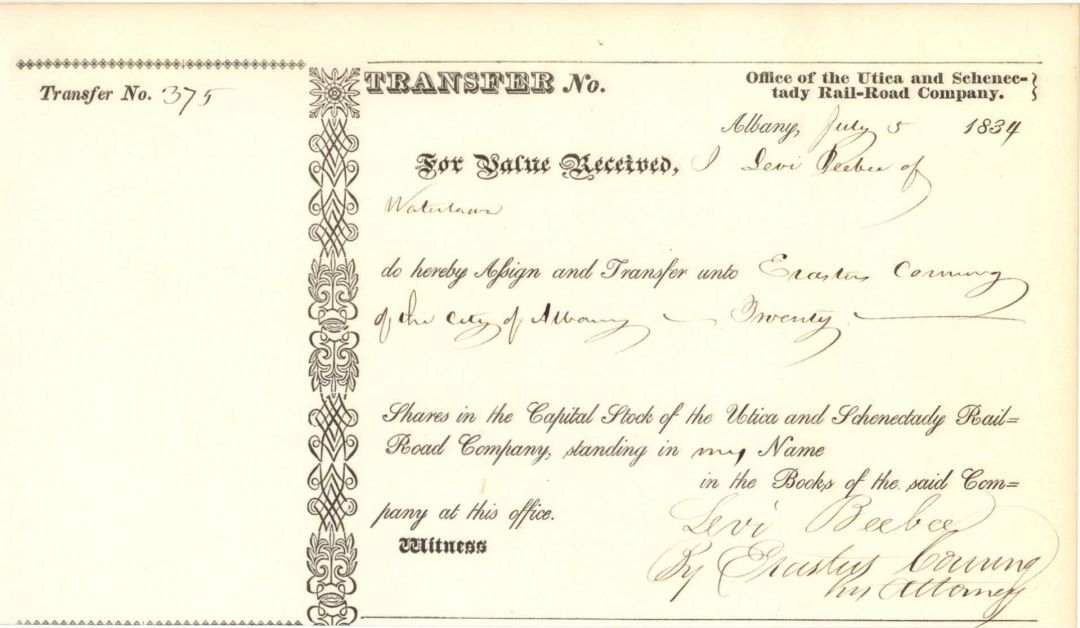 Transfer No. 375
TRANSFER No.
Office of the Utica and Schenec-
tady Rail-Road Company.
Albany, July 5 1834
For Value Received, I Levi Beebee of
Watertown
do hereby Assign and Transfer unto Erastus Corning
of the City of Albany — Twenty —
Shares in the Capital Stock of the Utica and Schenectady Rail=
Road Company, standing in my Name
in the Books of the said Com=
pany at this office.
Witness
Levi Beebee
By Erastus Corning
his Attorney